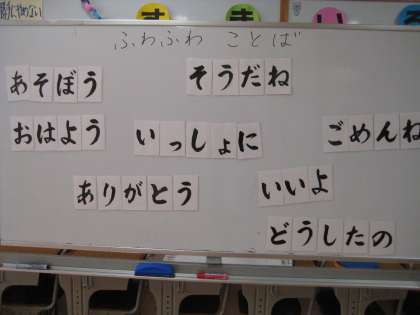 ふわふわ ことば
あそぼう
そうだね
おはよう
いっしょに
ごめんね
ありがとう
いいよ
どうしたの